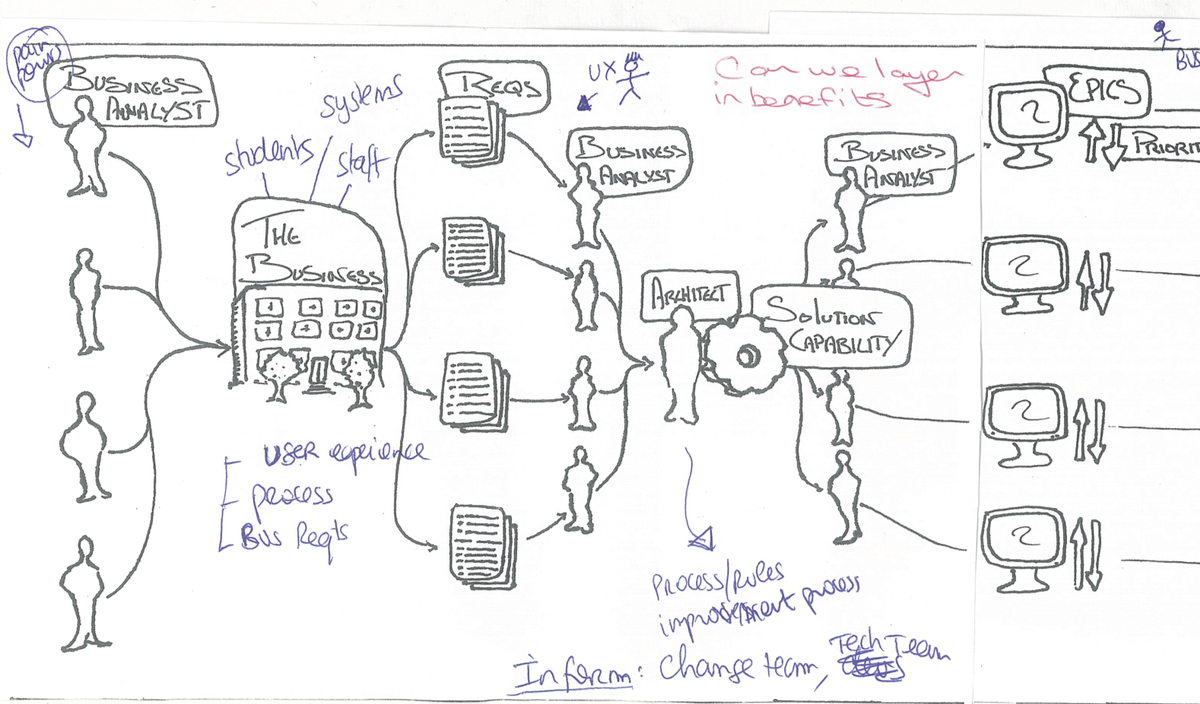 pain
points
BUSINESS
ANALYST
students
systems
staff
THE
BUSINESS
USER experience
process
BUS Reqts
REQS
UX
BUSINESS
ANALYST
Can we layer
in benefits
ARCHITECT
SOLUTION
CAPABILITY
BUSINESS
ANALYST
PROCESS/RULES
improvement process
Inform: Change team, Tech Team
EPICS
PRIORIT
BUS